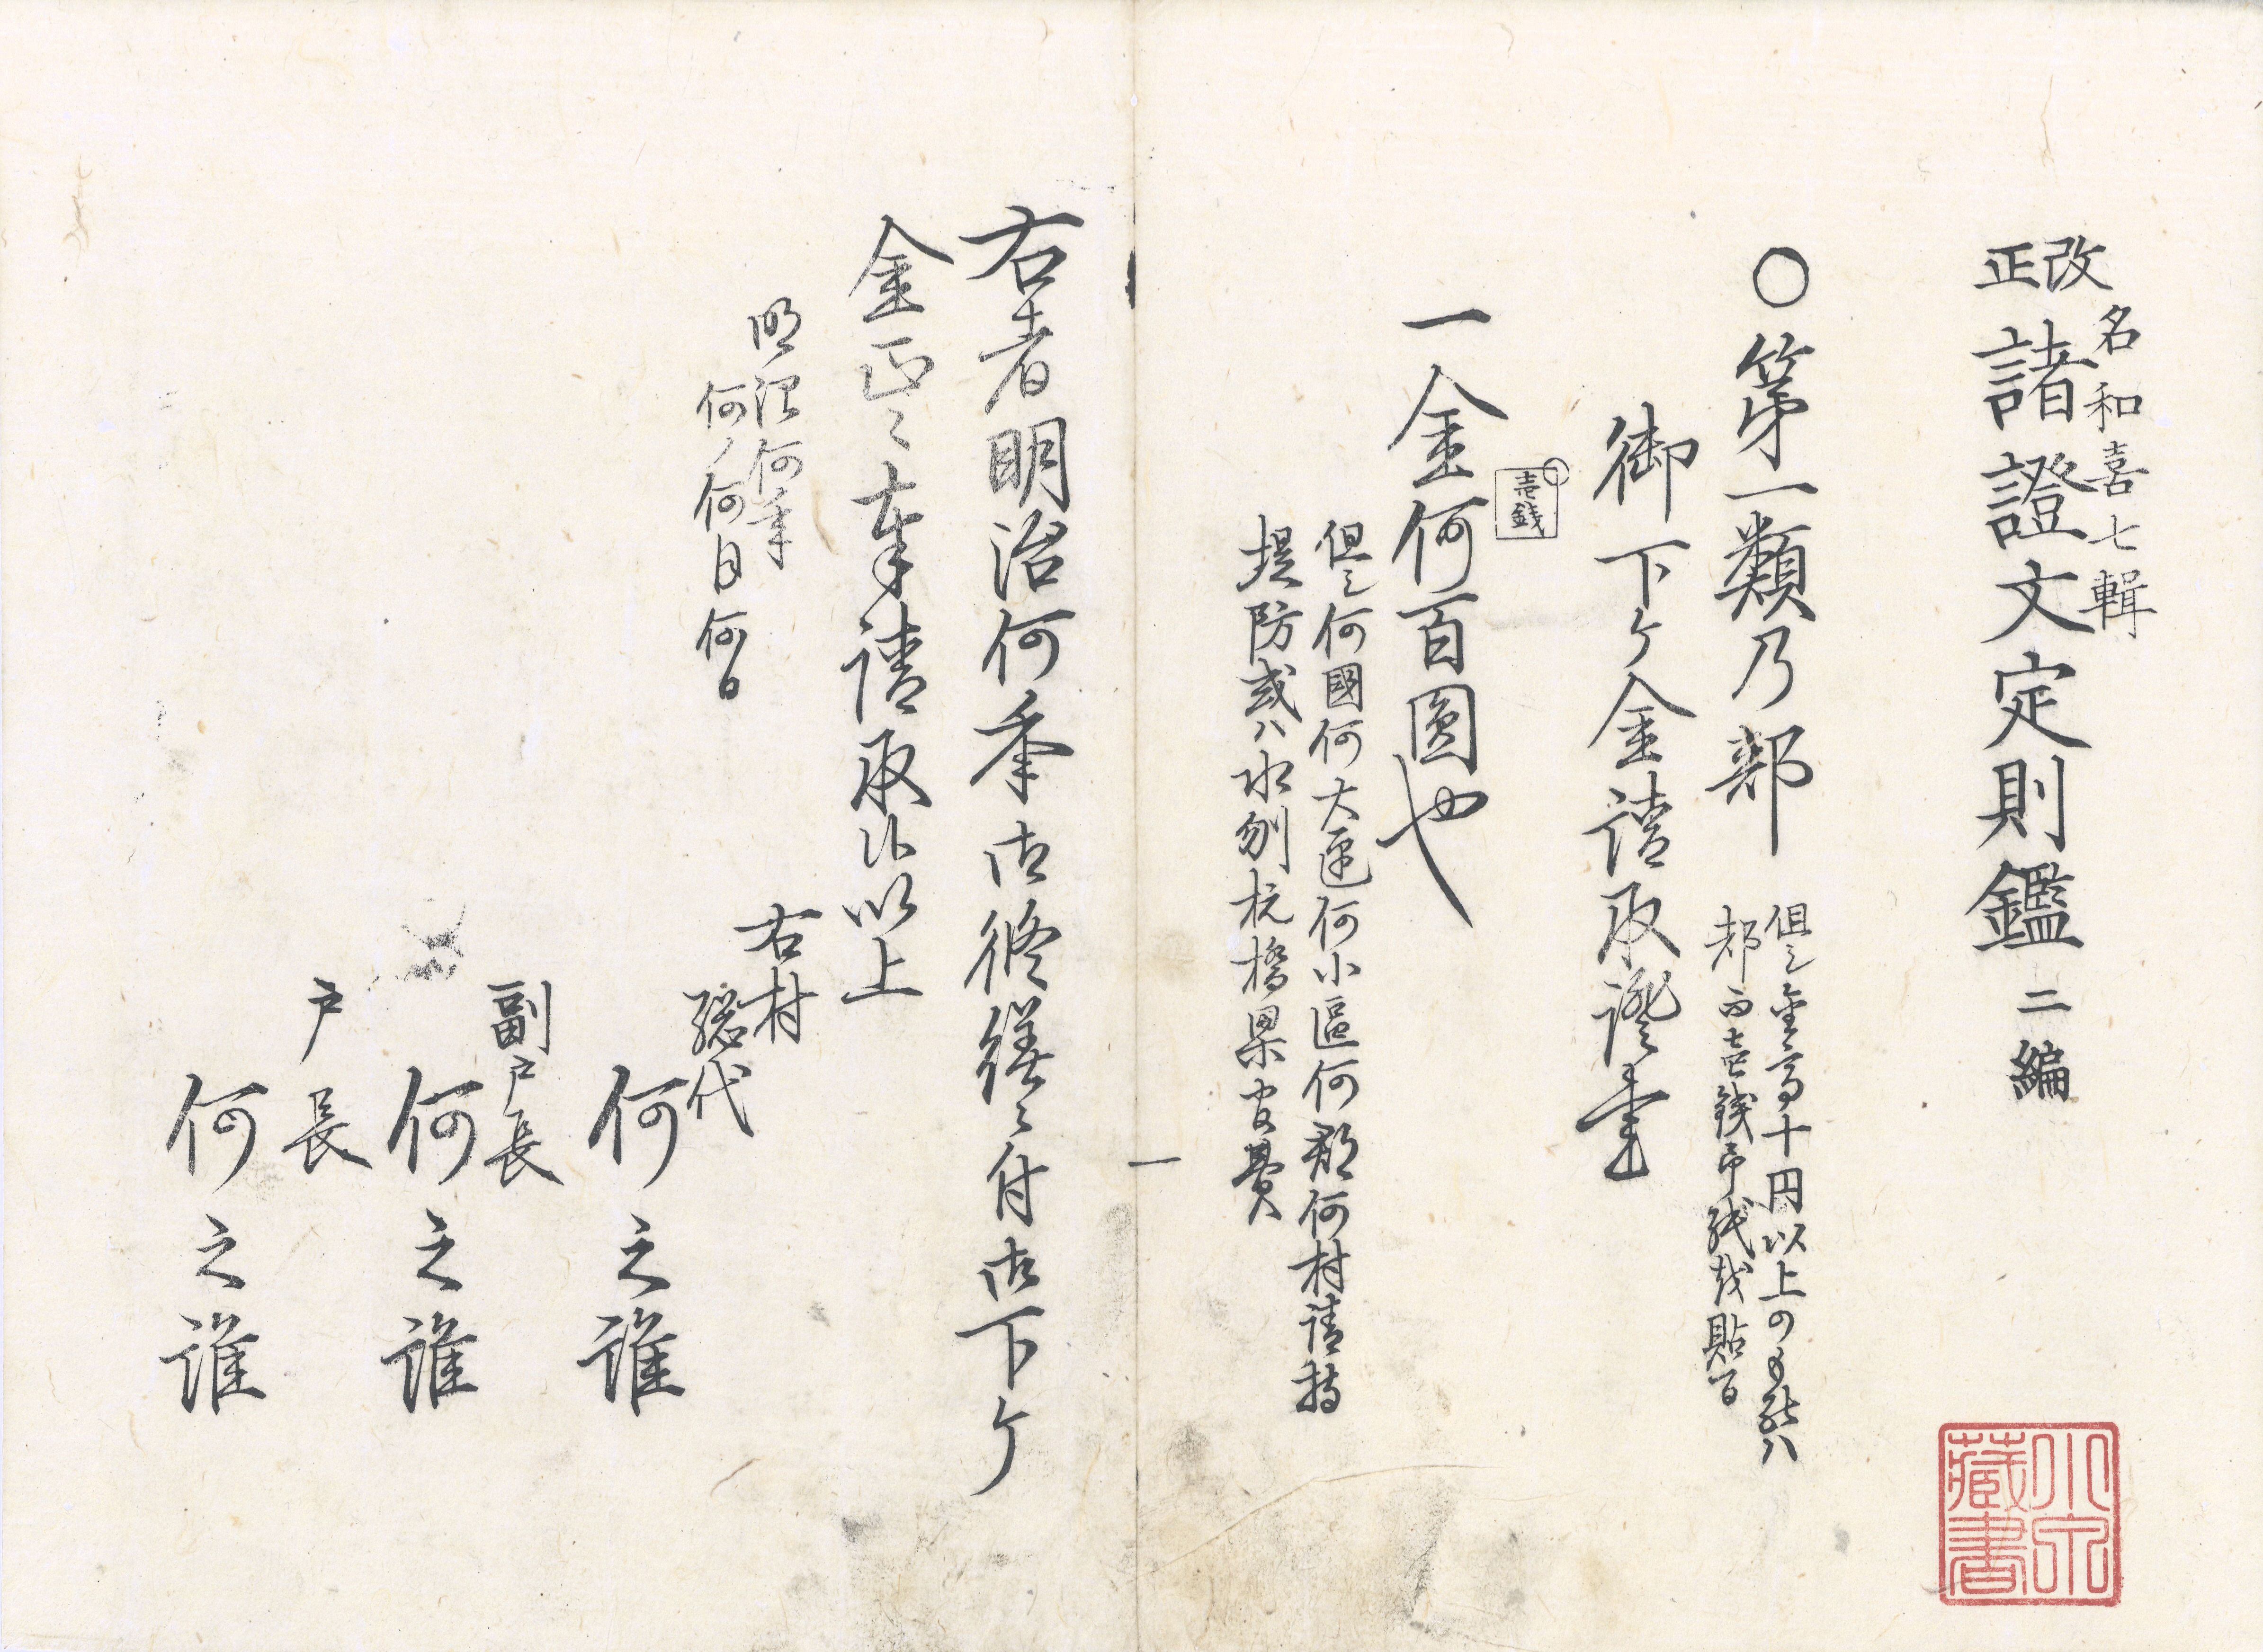 名和喜七輯
改正諸證文定則鑑 二編
○第一類乃部
但シ金高十円以上のもの能ハ
都而壱銭印紙越貼百
御下ケ金請取證書
壱銭
一金何百圓也
但シ何國何大區何小區何郡何村請持
堤防或ハ水刎杭橋梁官費
一
右者明治何年御修繕ニ付御下ケ
金正ニ奉請取候以上
明治何年
何ノ何月何日
右村
惣代
何之誰
副戸長
何之誰
戸長
何之誰
藏書